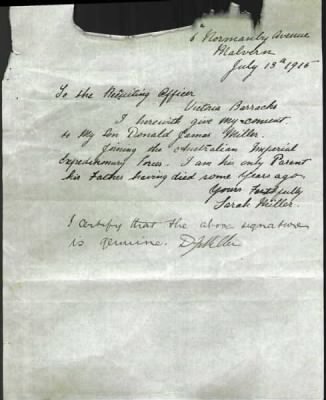 6 Normanby Avenue
Malvern
July 13th 1915
To the Recruiting Officer
Victoria Barracks
I herewith give my consent
to My Son Donald James Miller.
Joining the Australian Imperial
Expeditionary Force. I am his only Parent
his Father having died some years ago.
Yours Faithfully
Sarah Miller.
I certify that the above signature
is genuine. DJMiller